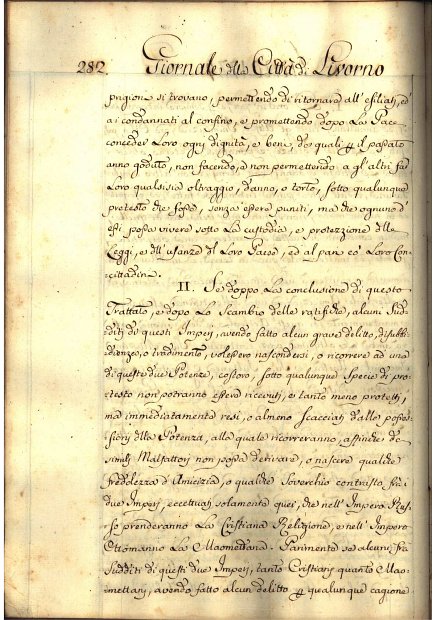 282. Giornale della Città di Livorno
prigione si trovano, permettendo di ritornare all' esiliati, ed
a i condannati al confino, e promettendo dopo La Pace
conceder Loro ogni dignità, e beni, de quali il passato
anno goduto, non facendo, e non permettendo a gl' altri far
Loro qualsisia oltraggio, danno, o torto, sotto qualunque
pretesto che fosse, senza essere puniti, ma che ognuno d'
essi possa vivere sotto La custodia, e protezzione delle
Leggi, e dell' usanze del Loro Paese, ed al pari co' Loro Con-
cittadini.
II. Se doppo La conclusione di questo
Trattato, e dopo Lo Scambio delle ratifiche, alcuni Sud-
diti di questi Imperj, avendo fatto alcun grave delitto, disubbi-
dienza, o tradimento, volessero nascondersi, o ricorrere ad una
di queste due Potenze, costoro, sotto qualunque Specie di pre-
testo non potranno essere ricevuti, e tanto meno protetti,
ma immediatamente resi, o almeno Scacciati dalle posses-
sioni della Potenza, alla quale ricorreranno, affinche da
simili Malfattori non possa derivare, o nascere qualche
freddezza d' Amicizia, o qualche Soverchio contrasto fra i
due Imperj, eccettuati solamente quei, che nell' Impero Rus-
so prenderanno La Cristiana Religione, e nell' Impero
Ottomanno La Maomettana. Parimente se alcuni fra
Sudditi di questi due Imperj, tanto Cristiani quanto Mao-
mettani, avendo fatto alcun delitto qualunque cagione